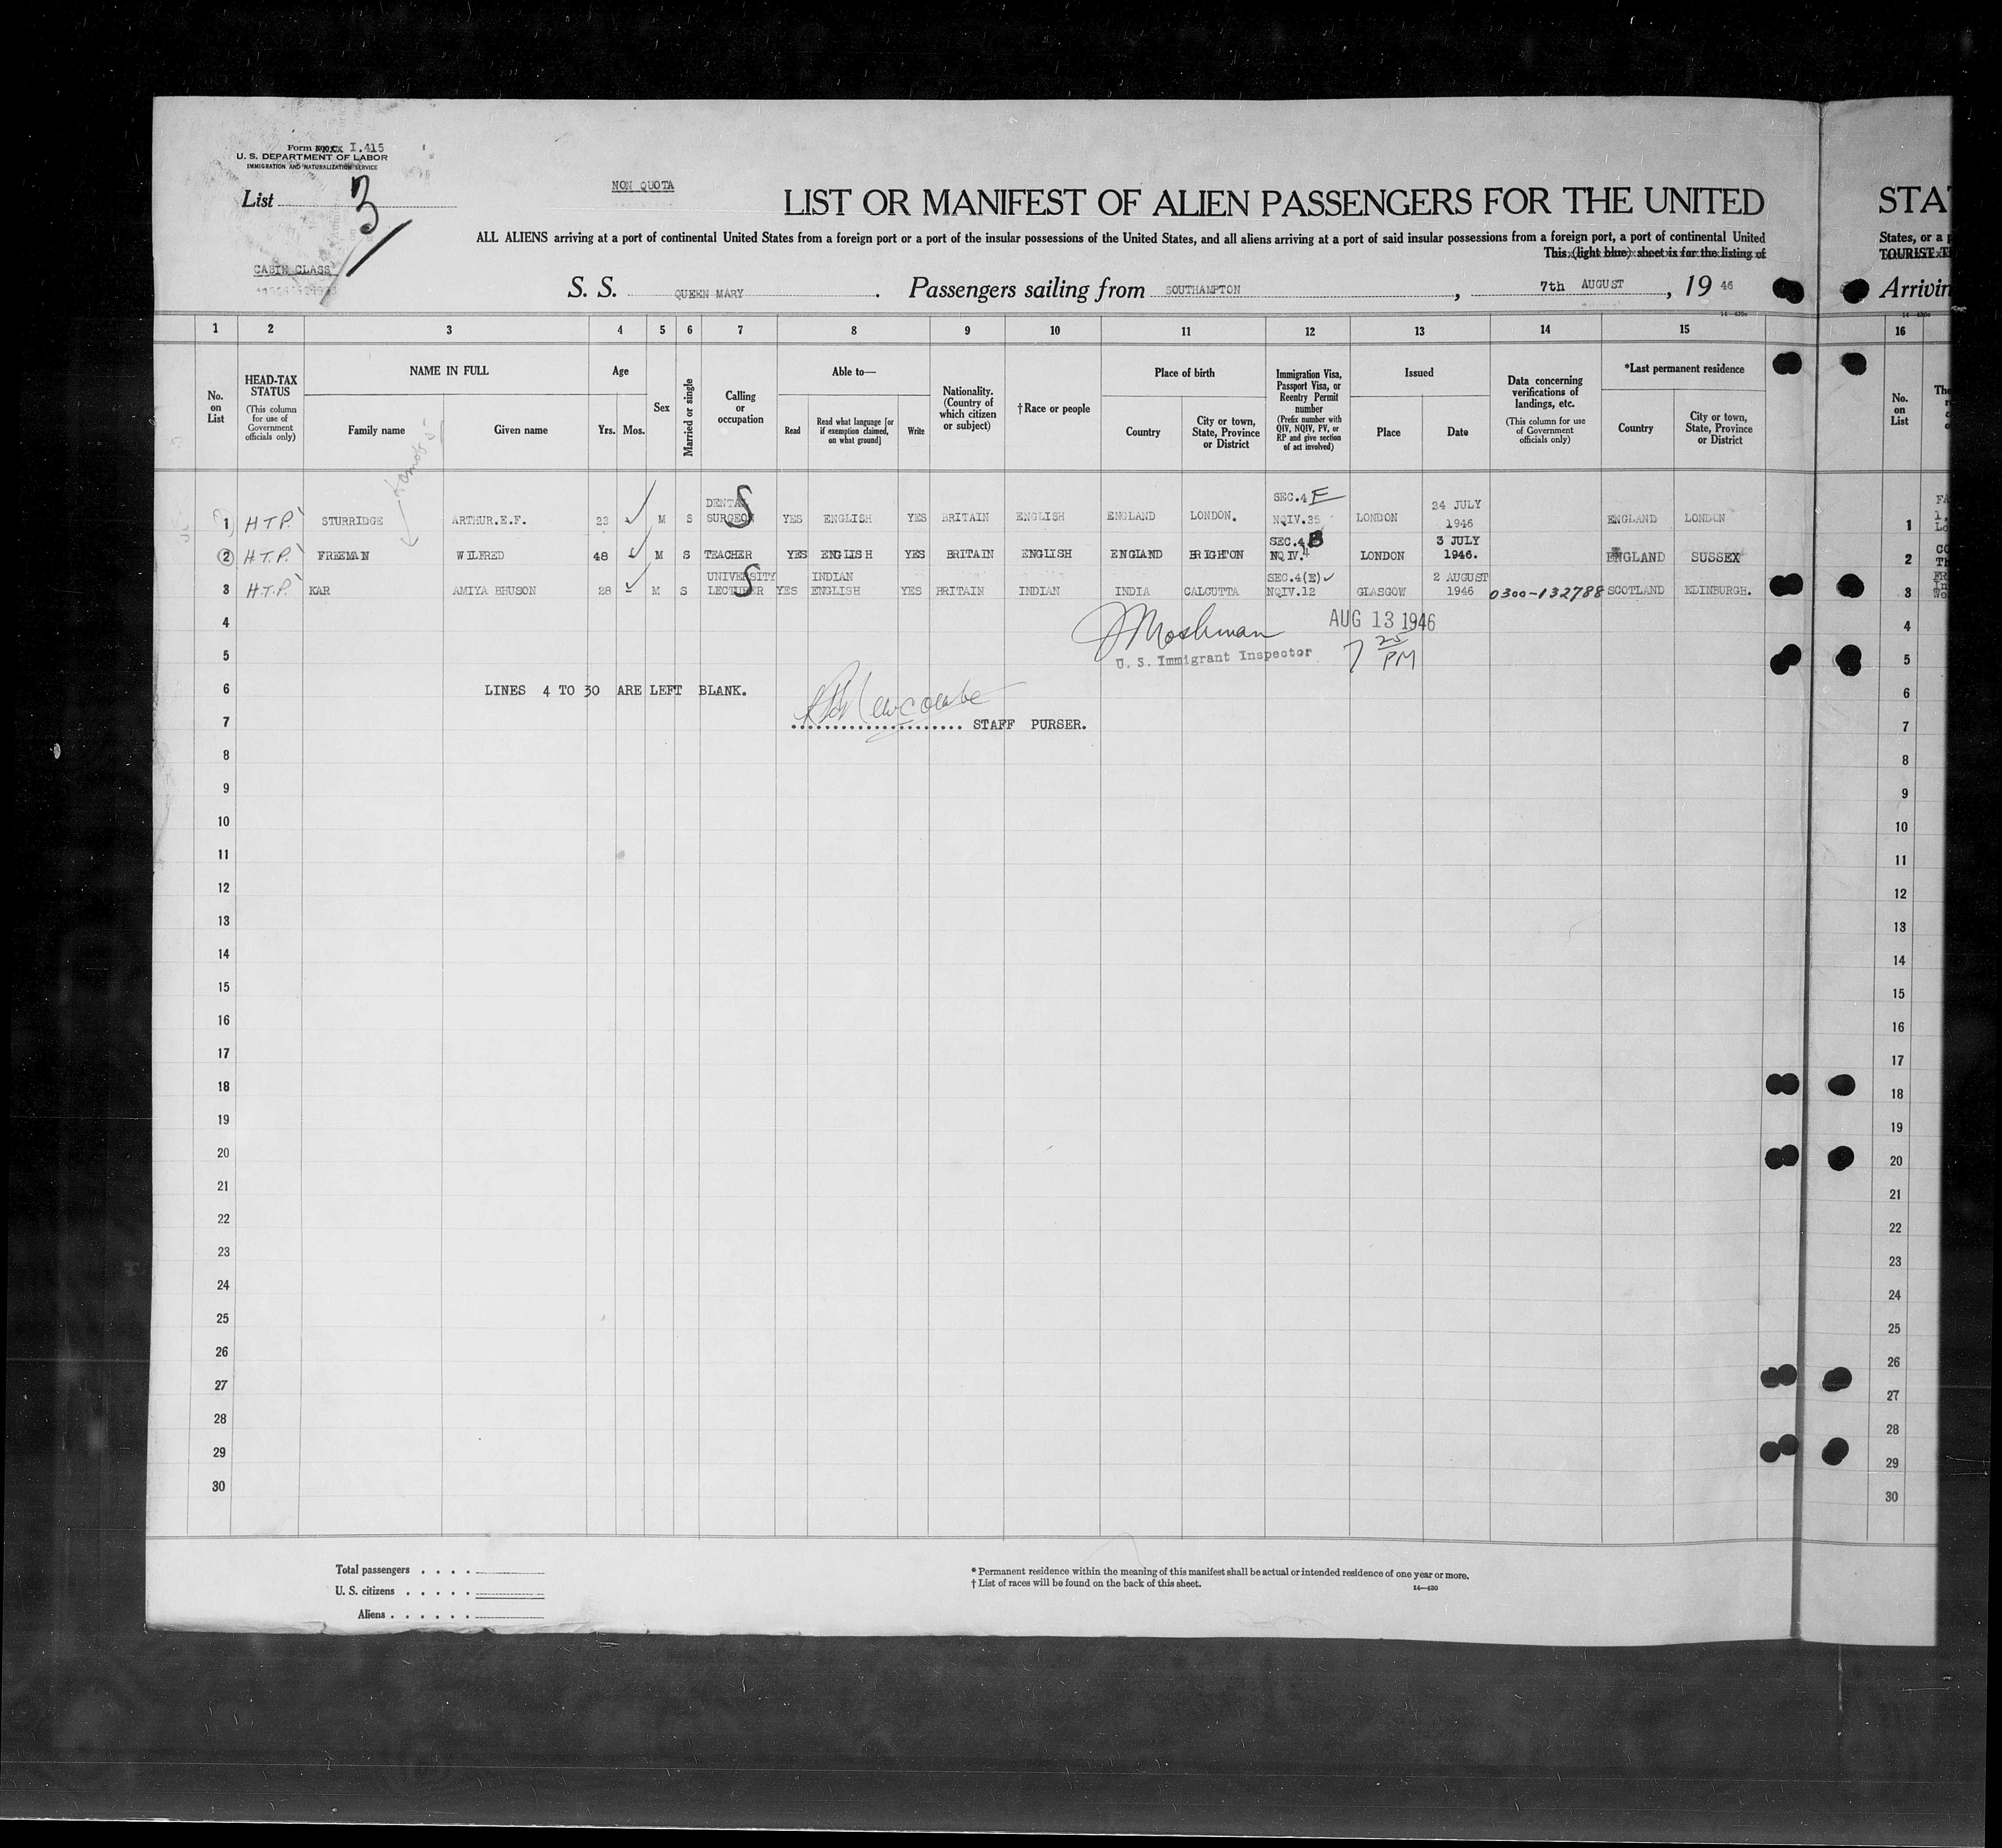 Form I.415
U. S. DEPARTMENT OF LABOR
IMMIGRATION AND NATURALIZATION SERVICE
List 3
NON QUOTA
CABIN CLASS
LIST OR MANIFEST OF ALIEN PASSENGERS FOR THE UNITED
ALL ALIENS arriving at a port of continental United States from a foreign port or a port of the insular possessions of the United States, and all aliens arriving at a port of said insular possessions from a foreign port, a port of continental United
This (light blue) sheet is for the listing of
S. S. QUEEN MARY. Passengers sailing from SOUTHAMPTON, 7th AUGUST, 19 46
STA
States, or a p
TOURIST T
Arrivin
1 2 3 4 5 6 7 8 9 10 11 12 13 14 15 16
No. on List
HEAD-TAX STATUS (This column for use of Government officials only)
NAME IN FULL
Family name
Given name
Age
Yrs. Mos.
Sex
Married or single
Calling or occupation
Able to—
Read
Read what language [or if exemption claimed, on what ground]
Write
Nationality. (Country of which citizen or subject)
†Race or people
Place of birth
Country
City or town, State, Province or District
Immigration Visa, Passport Visa, or Reentry Permit number (Prefix number with QIV, NQIV, PV, or RP and give section of act involved)
Issued
Place
Date
Data concerning verifications of landings, etc. (This column for use of Government officials only)
*Last permanent residence
Country
City or town, State, Province or District
No. on List
1 H.T.P. STURRIDGE ARTHUR.E.F. 23 M S DENTAL SURGEON S YES ENGLISH YES BRITAIN ENGLISH ENGLAND LONDON. SEC.4 E NQIV.35 LONDON 24 JULY 1946 ENGLAND LONDON 1
2 H.T.P. FREEMAN WILFRED 48 M S TEACHER YES ENGLISH YES BRITAIN ENGLISH ENGLAND BRIGHTON SEC.4 B NQIV.4 LONDON 3 JULY 1946. ENGLAND SUSSEX 2
3 H.T.P. KAR AMIYA BHUSON 28 M S UNIVERSITY LECTURER S YES INDIAN ENGLISH YES BRITAIN INDIAN INDIA CALCUTTA SEC.4(E) NQIV.12 GLASGOW 2 AUGUST 1946 0300-132788 SCOTLAND EDINBURGH. 3
4 AUG 13 1946 4
5 J Moshman U. S. Immigrant Inspector 7 25 PM 5
6 LINES 4 TO 30 ARE LEFT BLANK. 6
7 Newcombe STAFF PURSER. 7
8 8
9 9
10 10
11 11
12 12
13 13
14 14
15 15
16 16
17 17
18 18
19 19
20 20
21 21
22 22
23 23
24 24
25 25
26 26
27 27
28 28
29 29
30 30
Total passengers
U. S. citizens
Aliens
* Permanent residence within the meaning of this manifest shall be actual or intended residence of one year or more.
† List of races will be found on the back of this sheet.
14—430